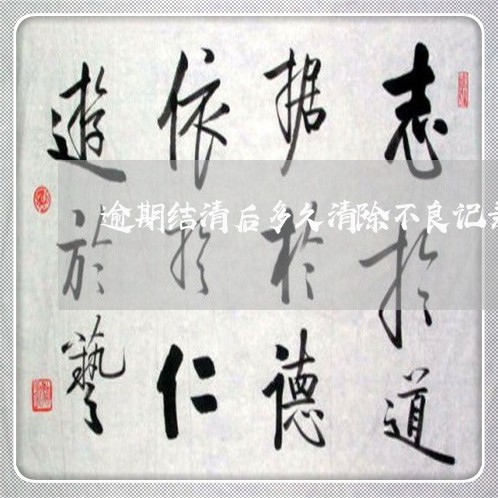 志於道
据於德
依於仁
遊於藝
逾期结清后多久清除不良记